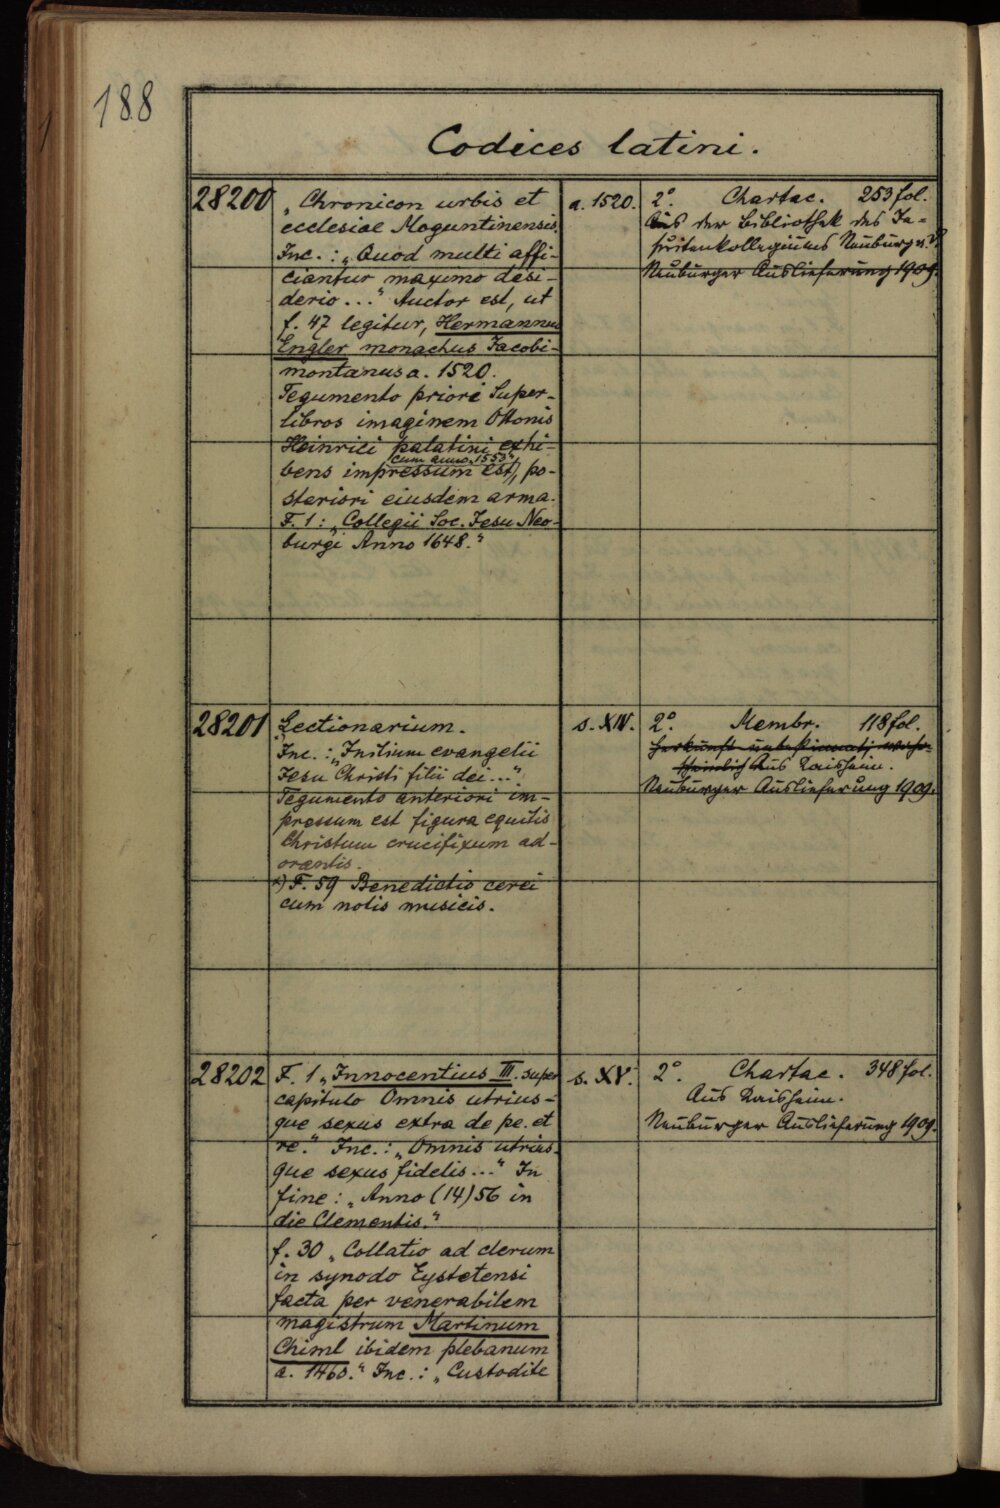 188
Codices latini.
28200
„Chronicon urbis et
ecclesiae Moguntinensis.
Inc.: „Quod multi affi-
ciantur maximo desi-
derio...“ Auctor est, ut
f. 47 legitur, Hermannus
Engler monachus Jacobi-
montanus a. 1520.
Tegumento priori Super-
libros imaginem Ottonis
Heinrici palatini exhi-
cum anno „1553“
bens impressum est, po-
steriori eiusdem arma.
F. 1: „Collegii Soc. Jesu Neo-
burgi Anno 1648.“
a. 1520.
2°. Chartac. 253 fol.
Aus der Bibliothek des Je-
suitenkollegiums Neuburg a. D.
Neuburger Auslieferung 1909.
28201
Lectionarium.
Inc.: „Initium evangelii
Jesu Christi filii dei...“
Tegumento anteriori im-
pressum est figura equitis
Christum crucifixum ad-
orantis.
x) F. 59 Benedictio cerei
cum notis musicis.
s. XIV.
2°. Membr. 118 fol.
Herkunft unbekannt; wahr-
scheinlich Aus Kaisheim.
Neuburger Auslieferung 1909.
28202
F. 1 „Innocentius III. super
capitulo Omnis utrius-
que sexus extra de pe. et
re.“ Inc.: „Omnis utrius-
que sexus fidelis...“ In
fine: „Anno (14)56 in
die Clementis.“
f. 30 „Collatio ad clerum
in synodo Eystetensi
facta per venerabilem
magistrum Martinum
Chiml ibidem plebanum
a. 1460.“ Inc.: „Custodite
s. XV.
2°. Chartac. 348 fol.
Aus Kaisheim.
Neuburger Auslieferung 1909.